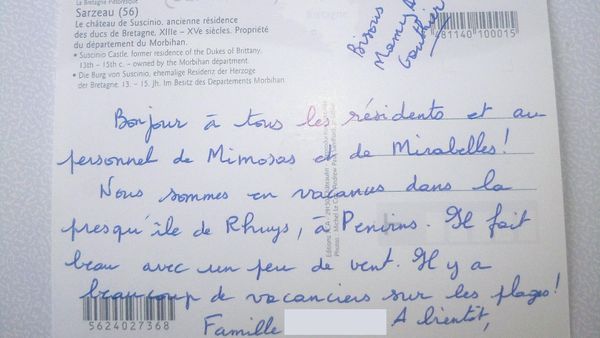 La Bretagne Pittoresque
Sarzeau (56)
Le château de Suscinio, ancienne résidence
des ducs de Bretagne, XIIIe - XVe siècles. Propriété
du département du Morbihan.
• Suscinio Castle, former residence of the Dukes of Brittany,
13th - 15th c. - owned by the Morbihan département.
• Die Burg von Suscinio, ehemalige Residenz der Herzoge
der Bretagne. 13. - 15. Jh. Im Besitz des Departements Morbihan.
Bisous
Mamy
Gauthier
481140 100015
Bonjour à tous les résidents et au
personnel de Mimosas et de Mirabelles!
Nous sommes en vacances dans la
presqu'île de Rhuys, à Penvins. Il fait
beau avec un peu de vent. Il y a
beaucoup de vacanciers sur les plages!
Famille A bientôt,
5624027368